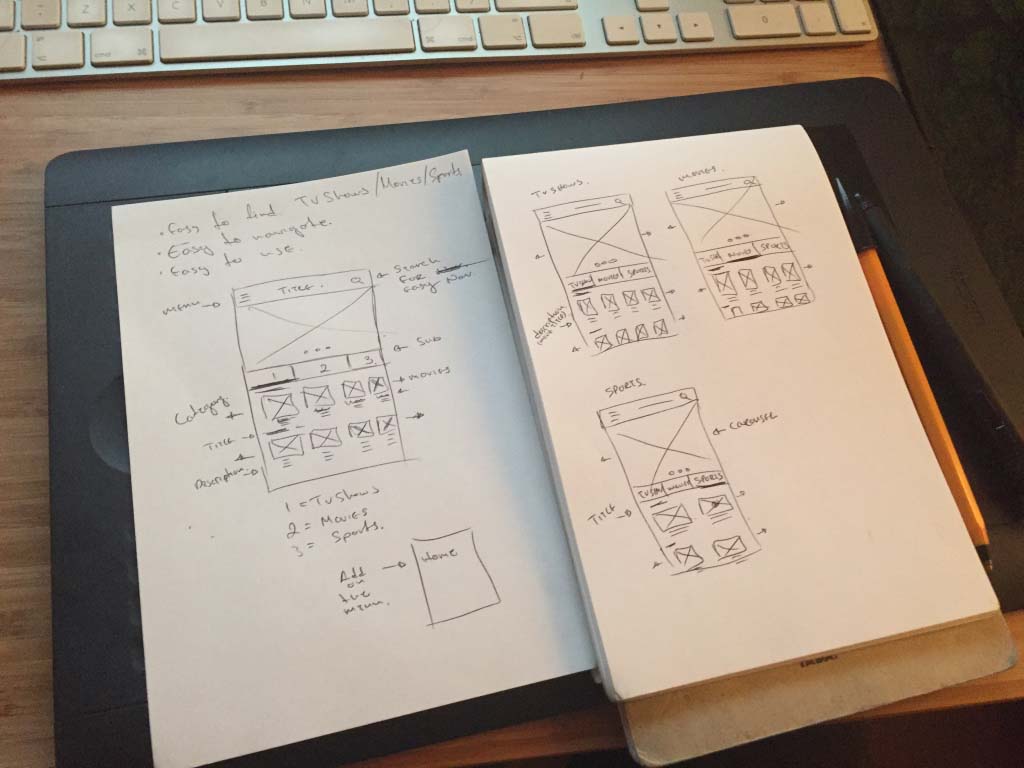 Z
X
C
V
B
N
M
alt
cmd
⌘
⌘
cmd
alt
0
. Easy to find TV Shows/Movies/Sports
. Easy to navigate.
. Easy to use.
Menu
TITLE.
Search
For
Easy Nav
1 2 3
Sub
Category
Movies
Title
Description
1 = TV Shows
2 = Movies
3 = Sports.
Add
on
the
menu.
Home
TV Shows.
TVSH/ Movies/ SPORTS
Description
Movies.
TVSH/ Movies/ SPORTS
SPORTS.
Carousel
TVSH/ Movies/ SPORTS
Title